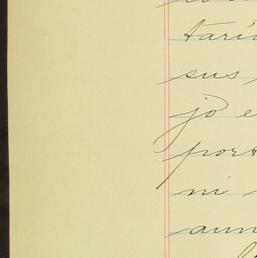 tari
sus
jo e
port
ni
aun